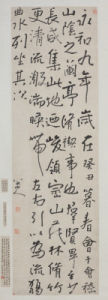 永和九年歲在癸丑暮春會于會稽
山陰之蘭亭脩禊事羣賢畢至少
長咸集此地迺峻領崇山茂林脩竹
更清流激湍暎帶左右引以為流觴
曲水列坐其次
八大山人